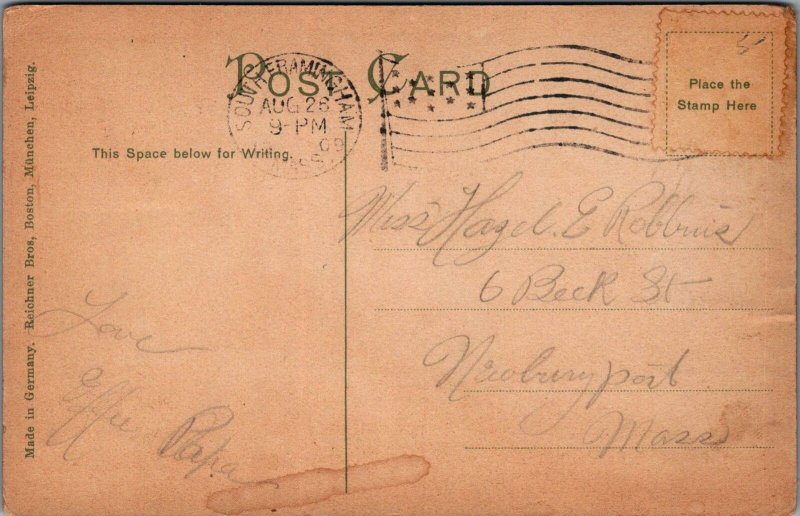 POST CARD
SOUTH FRAMINGHAM
AUG 26
9-PM
09
MASS.
Place the
Stamp Here
This Space below for Writing.
Made in Germany. Reichner Bros, Boston, München, Leipzig.
Miss Hazel E Robbins
6 Beck St
Newburyport
Mass
Love
Effie Papa